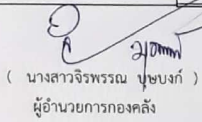 ( นางสาวจิรพรรณ บุษบงก์ )
ผู้อำนวยการกองคลัง